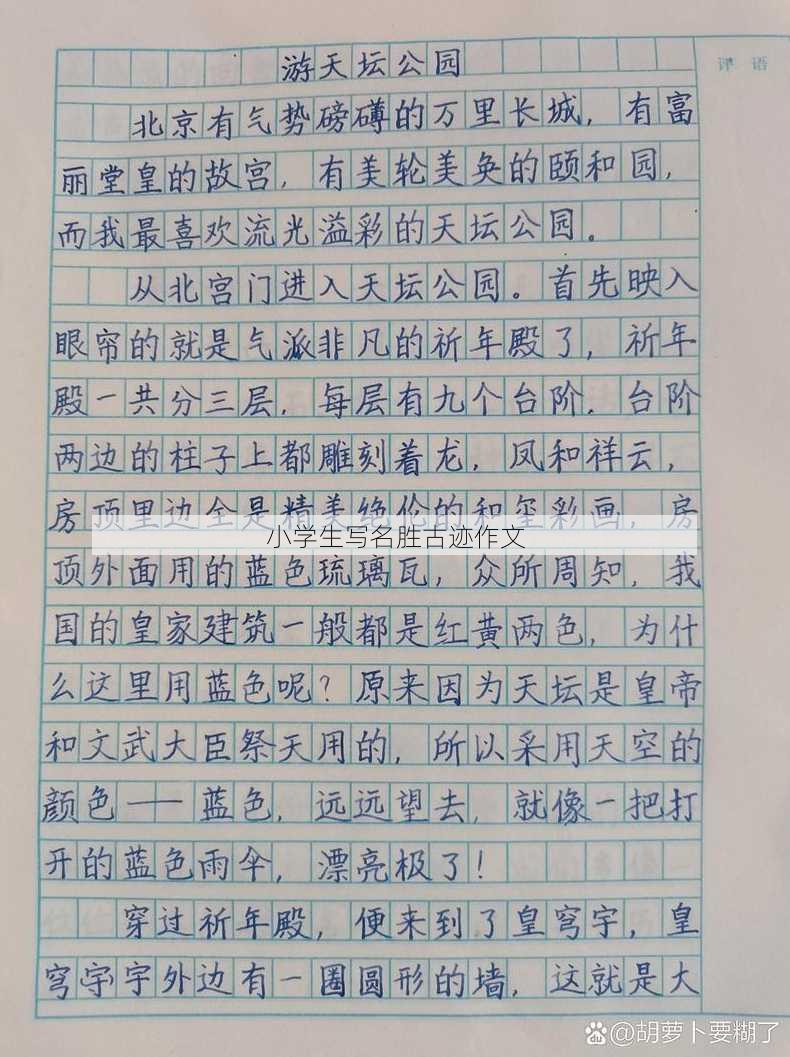 游天坛公园
评语
北京有气势磅礴的万里长城，有富
丽堂皇的故宫，有美轮美奂的颐和园，
而我最喜欢流光溢彩的天坛公园。
从北宫门进入天坛公园。首先映入
眼帘的就是气派非凡的祈年殿了，祈年
殿一共分三层，每层有九个台阶，台阶
两边的柱子上都雕刻着龙，凤和祥云，
房顶里边全是精美绝伦的和玺彩画，房
小学生写名胜古迹作文
顶外面用的蓝色琉璃瓦，众所周知，我
国的皇家建筑一般都是红黄两色，为什
么这里用蓝色呢？原来因为天坛是皇帝
和文武大臣祭天用的，所以采用天空的
颜色——蓝色，远远望去，就像一把打
开的蓝色雨伞，漂亮极了！
穿过祈年殿，便来到了皇穹宇，皇
穹宇宇外边有一圈圆形的墙，这就是大
@胡萝卜要糊了